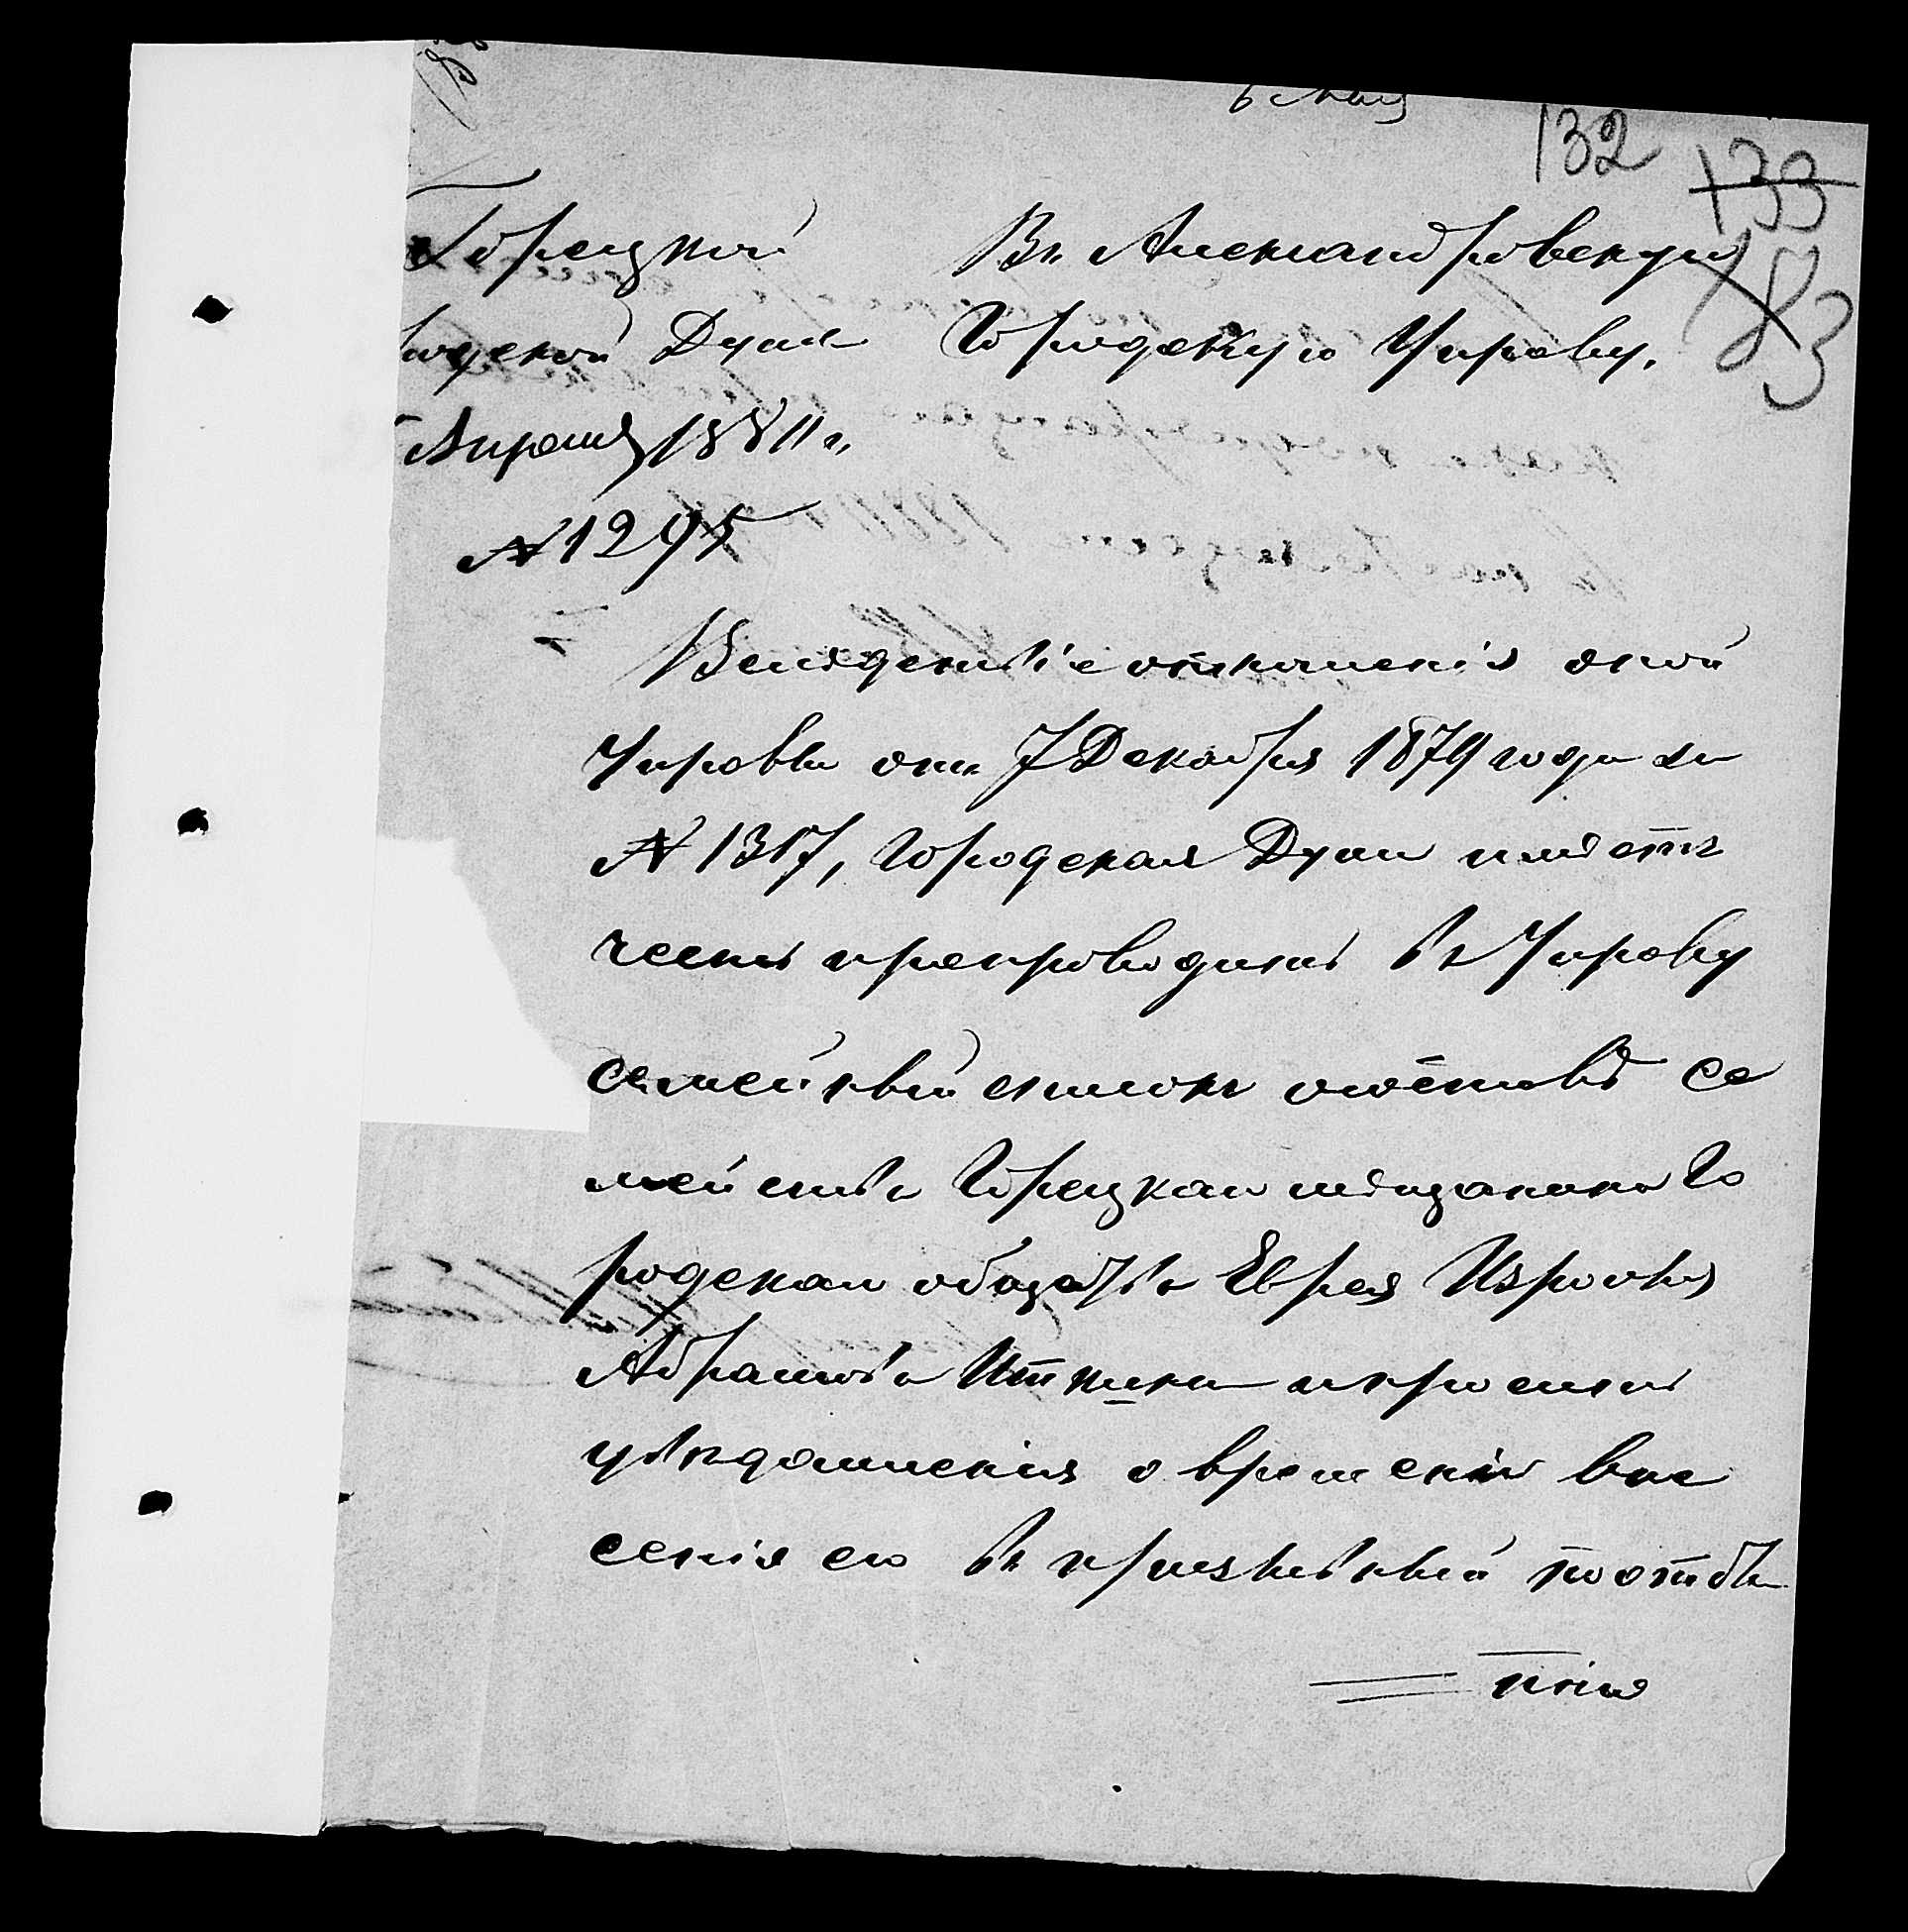 6 Мая
132 133
183
Горецкой
Городской Думы
Апреля 1881 г.
№ 1295
Въ Александровскую
Городскую Управу.
Вследствіе отношенія оной
Управы отъ 7 Декабря 1879 года за
№ 1317, Городская Дума имѣетъ
честь препроводить въ Управу
семейный списокъ о составѣ се
мейства Горецкаго мѣщанина Го
родскаго общества Еврея Израиля
Абрамова Иткина и просить
увѣдомленія о времени вне
сенія его въ призывный